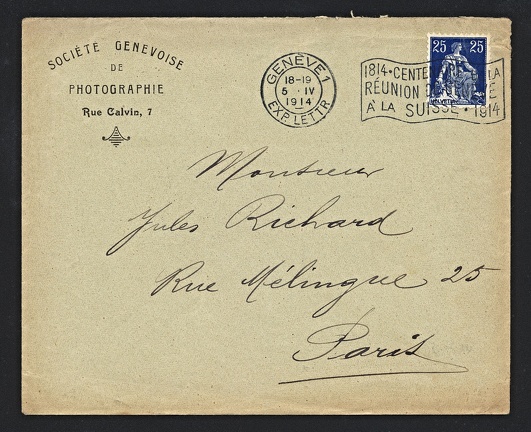 SOCIÉTÉ GENEVOISE
DE
PHOTOGRAPHIE
Rue Calvin, 7
GENÈVE 1
18-19
5 · IV
1914
EXP. LETTR
1814 · CENTE LA
RÉUNION DE
A LA SUISSE · 1914
25 25
Monsieur
Jules Richard
Rue Mélingue 25
Paris